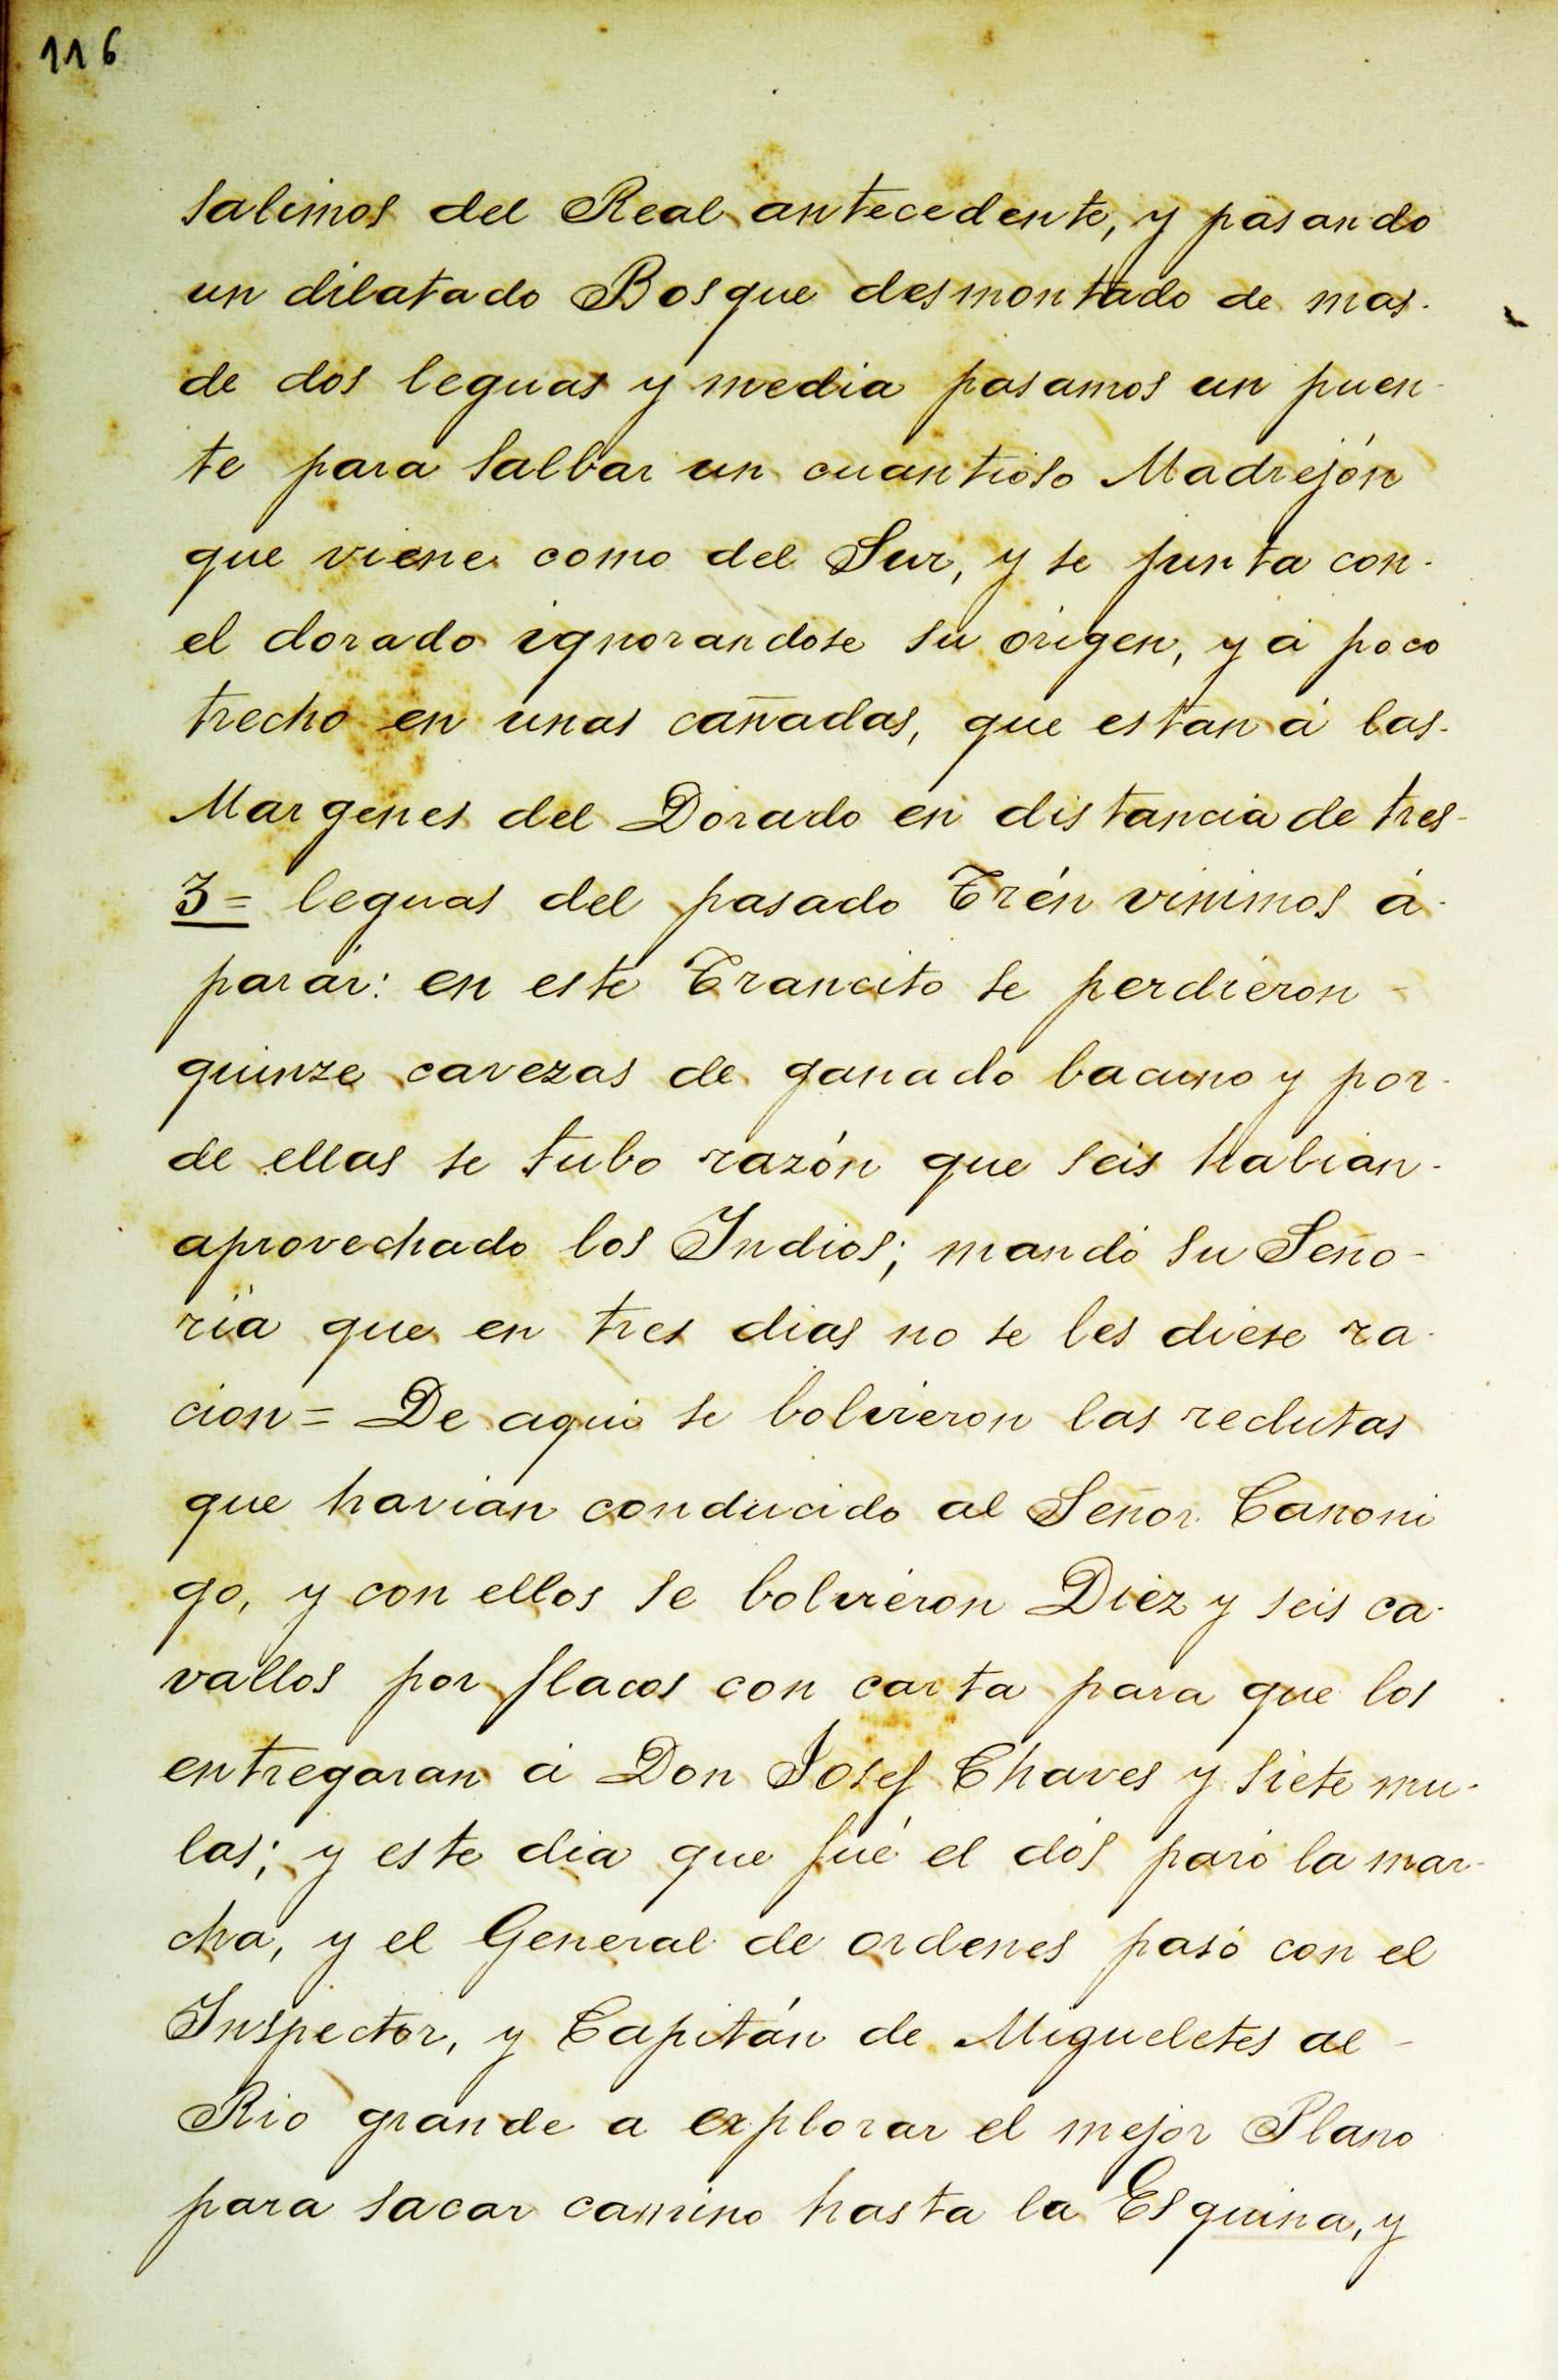 116
salimos del Real antecedente, y pasando
un dilatado Bosque desmontado de mas.
de dos leguas y media pasamos un puen-
te para salbar un cuantioso Madrejón
que viene como del Sur, y se junta con-
el dorado ignorandose su origen, y á poco
trecho en unas cañadas, que estan á las-
Margenes del Dorado en distancia de tres-
3= leguas del pasado Trén vinimos á-
parár: en este Trancito se perdieron -
quinze cavezas de ganado bacuno y por-
de ellas se tubo razón que seis habian-
aprovechado los Indios; mandó su Seño-
ria que en tres dias no se les diese ra-
cion= De aqui se bolvieron las reclutas
que havian conducido al Señor Canoni
go, y con ellos se bolvieron Diez y seis ca-
vallos por flacos con carta para que los
entregaran á Don Josef Chaves y siete mu-
las; y este dia que fué el dós paró la mar-
cha, y el General de ordenes pasó con el
Inspector, y Capitán de Migueletes al -
Rio grande a explorar el mejor Plano
para sacar camino hasta la Esquina, y